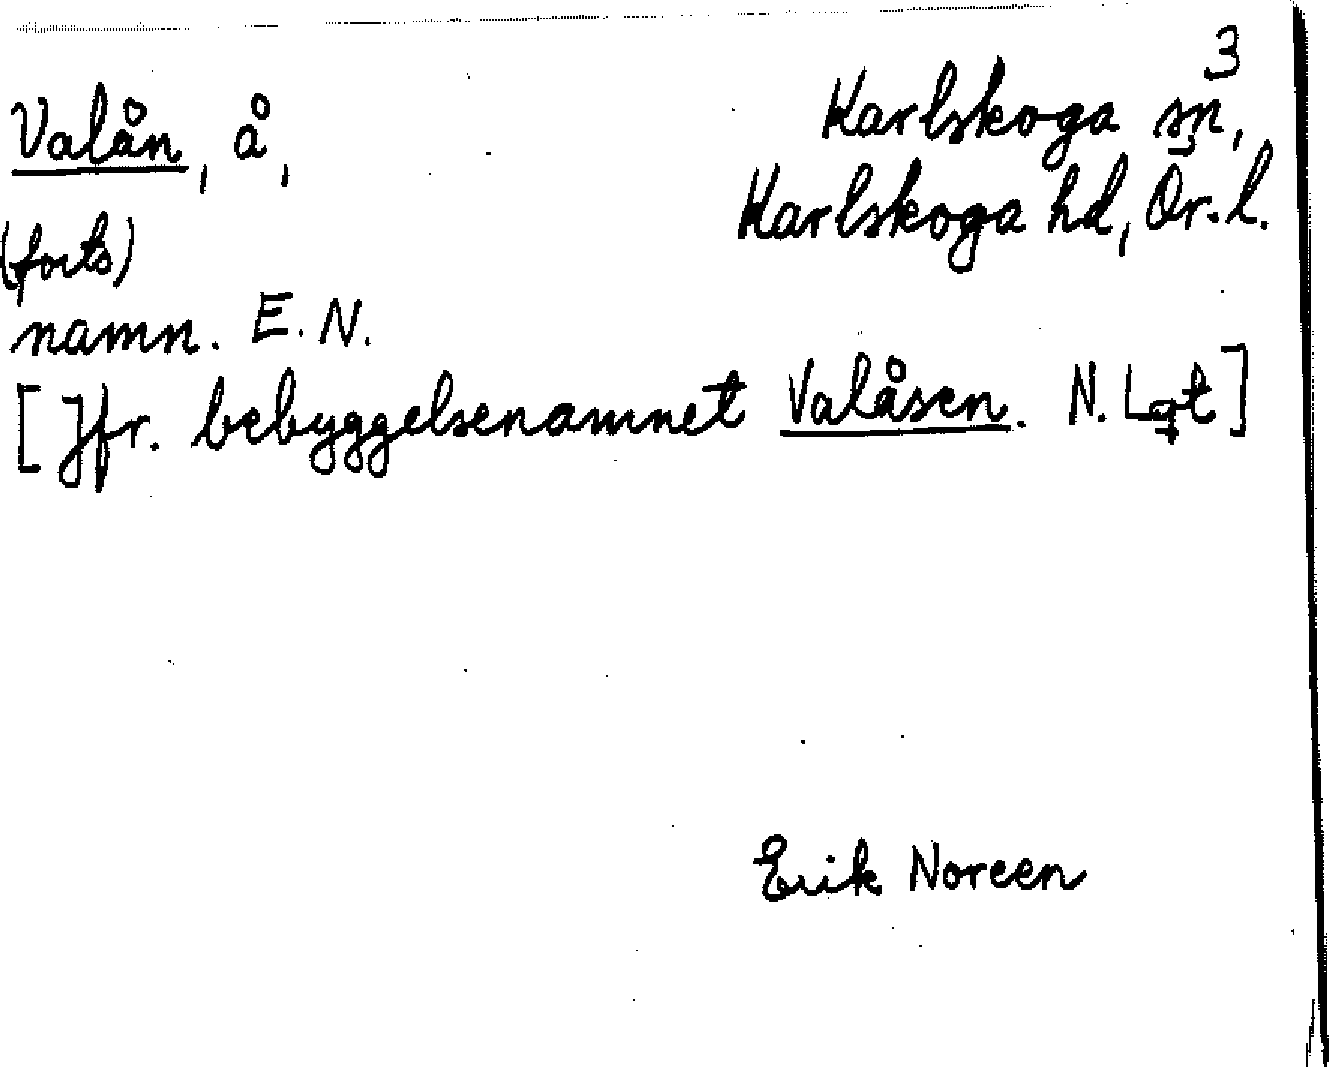 3
Valån, å, Karlskoga sn,
(forts) Karlskoga hd, Ör. l.
namn. E. N.
[Jfr. bebyggelsenamnet Valåsen. N. Lgt]
Erik Noreen